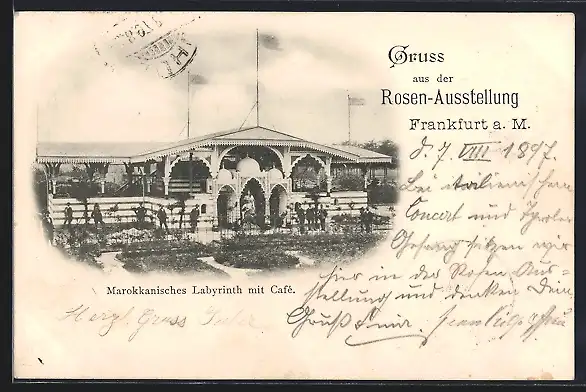 Gruss
aus der
Rosen-Ausstellung
Frankfurt a. M.
d. 7. VIII 1897.
Bei italienischem
Concert und Tyroler
Gesang sitzen wir
hier in der Rosen Aus-
stellung und denken Dein
Gruß
Marokkanisches Labyrinth mit Café.
Herzl. Gruss